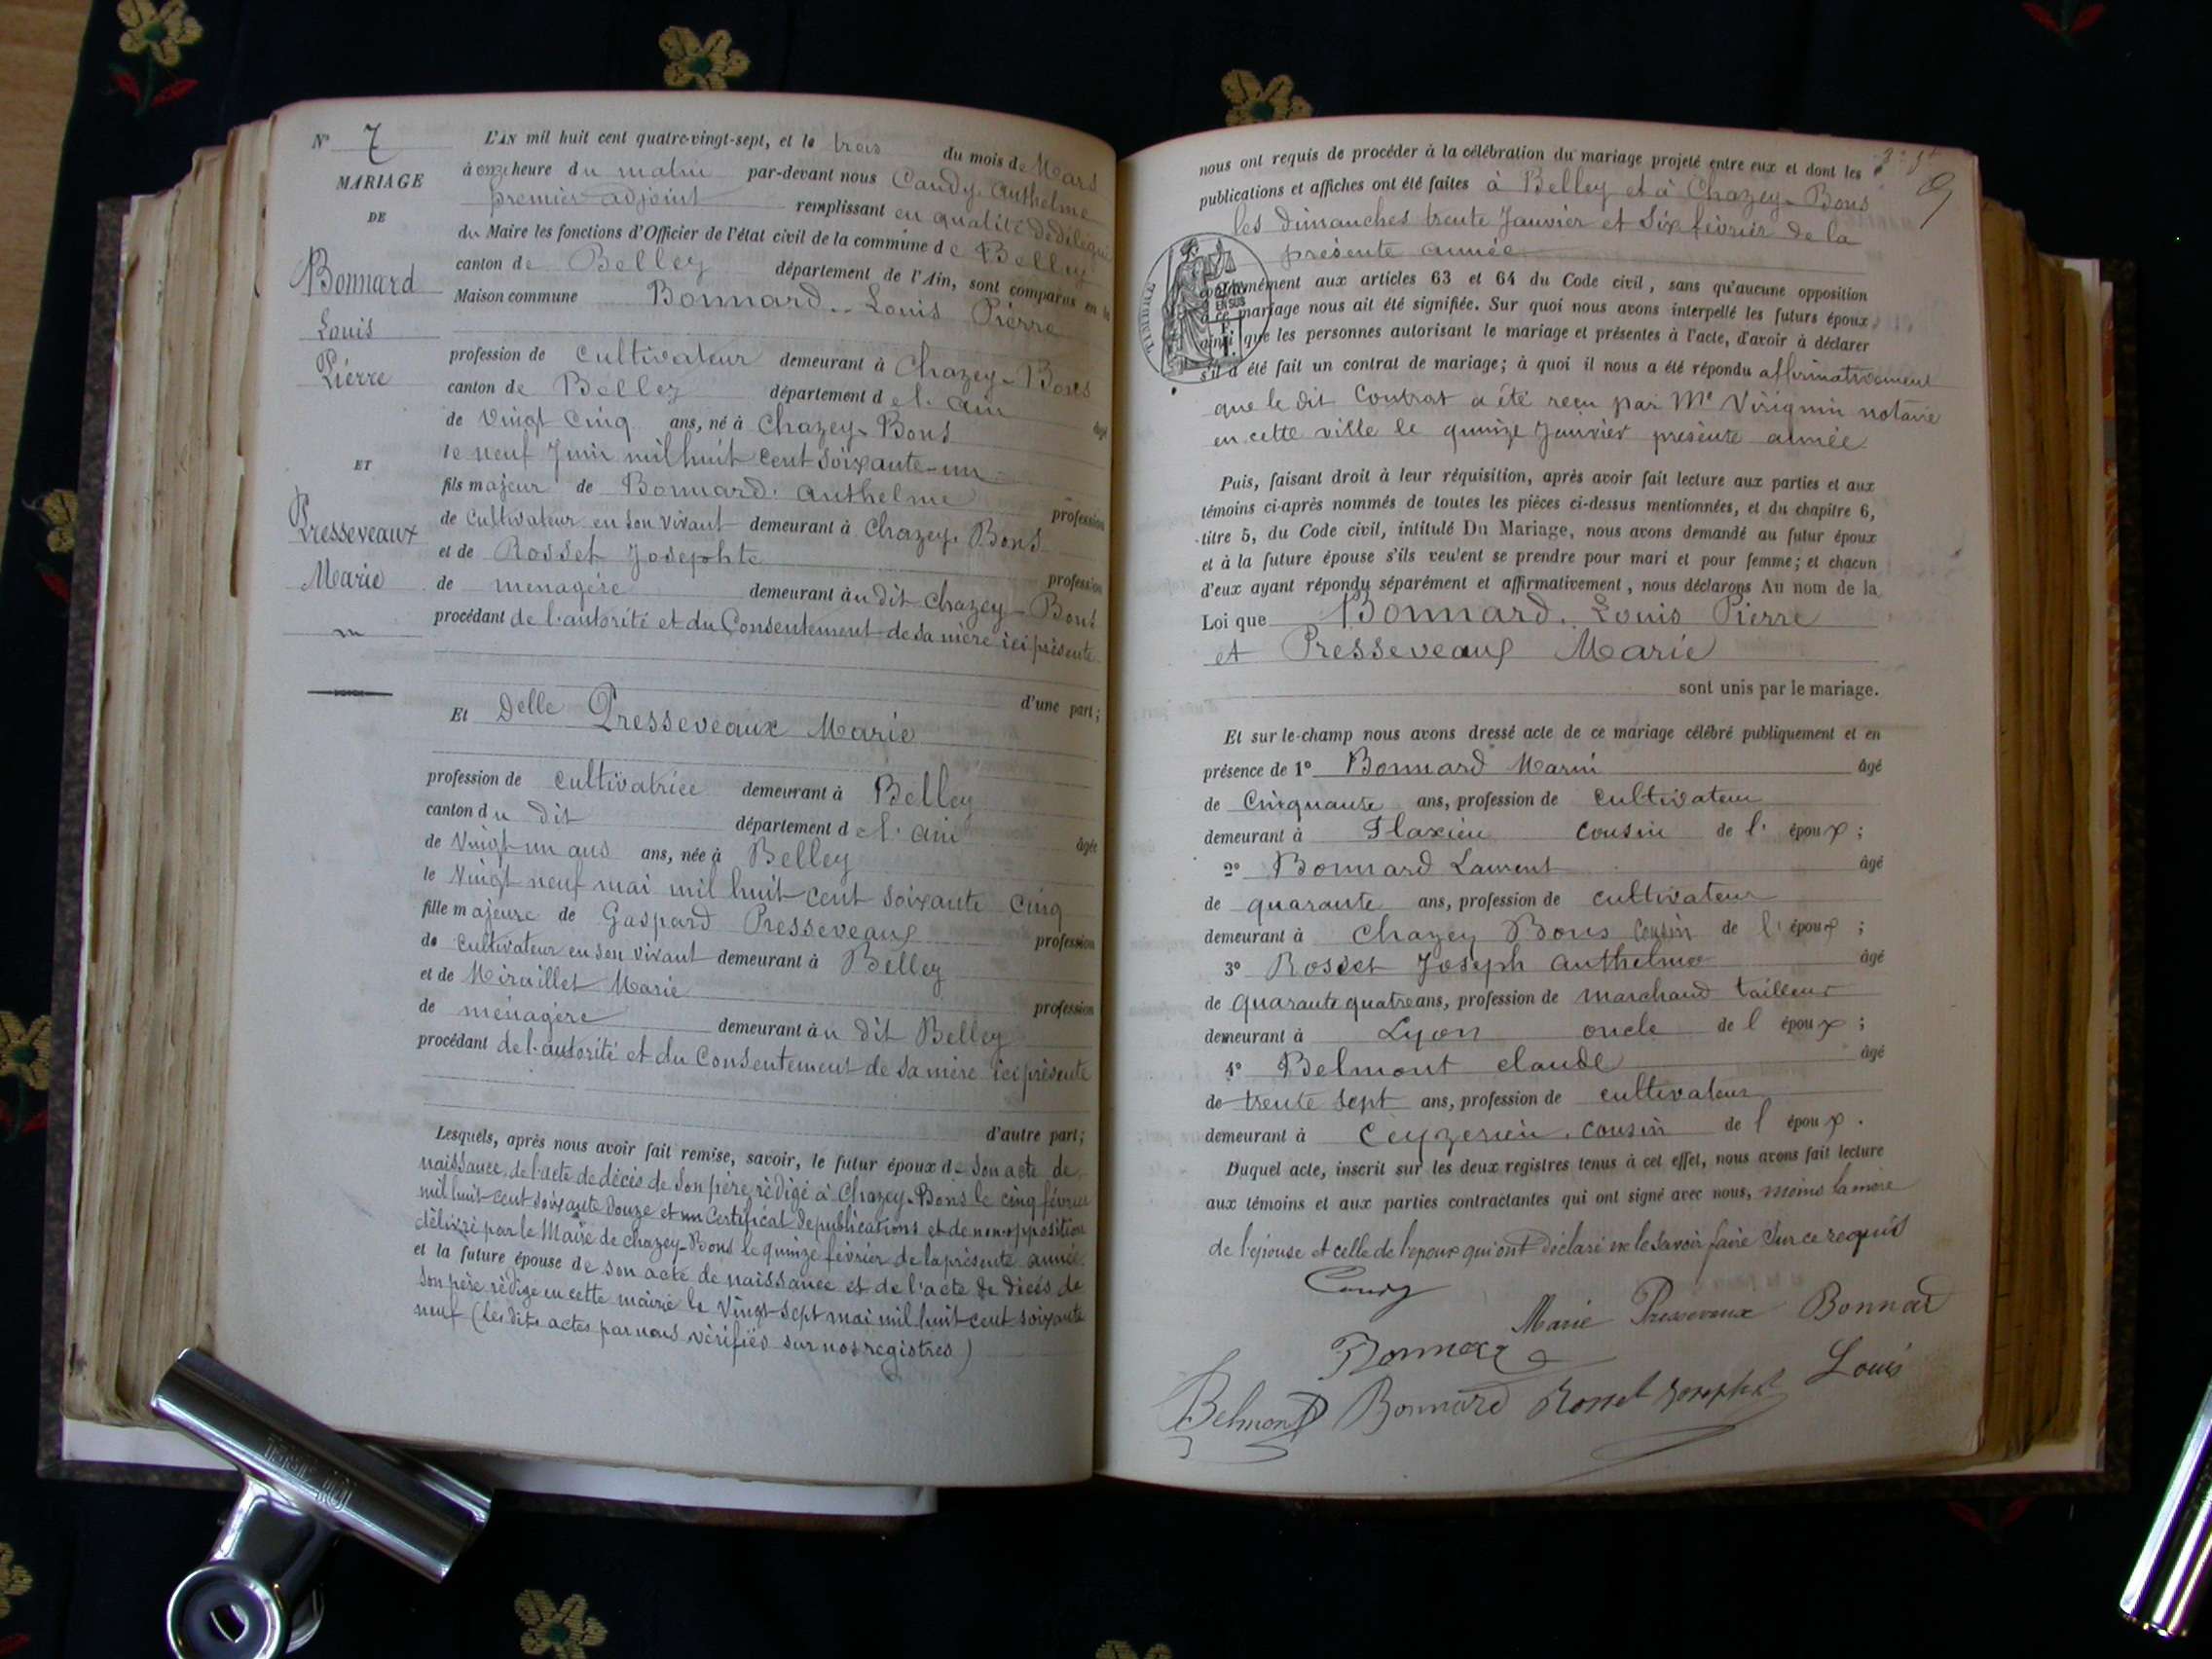 N° 7
MARIAGE
DE
Bonnard
Louis
Pierre
ET
Presseveaux
Marie
L'AN mil huit cent quatre-vingt-sept, et le trois du mois de Mars
à onze heure du matin par-devant nous Candy, Anthelme
premier adjoint remplissant en qualité de délégué
du Maire les fonctions d'Officier de l'état civil de la commune de Belley
canton de Belley département de l'Ain, sont comparus en la
Maison commune Bonnard. Louis Pierre
profession de cultivateur demeurant à Chazey-Bons
canton de Belley département de l'ain
de vingt cinq ans, né à Chazey-Bons âgé
le neuf Juin mil huit cent soixante-un
fils majeur de Bonnard. Anthelme profession
de cultivateur en son vivant demeurant à Chazey-Bons
et de Rosset Josephte profession
de ménagère demeurant au dit Chazey-Bons
procédant de l'autorité et du Consentement de sa mère ici présente
d'une part;
Et Delle Presseveaux Marie
profession de cultivatrice demeurant à Belley
canton du dit département de l'ain
de Vingt un ans ans, née à Belley âgée
le Vingt neuf mai mil huit cent soixante cinq
fille majeure de Gaspard Presseveaux profession
de cultivateur en son vivant demeurant à Belley
et de Miraillet Marie profession
de ménagère demeurant au dit Belley
procédant de l'autorité et du Consentement de sa mère ici présente
d'autre part;
Lesquels, après nous avoir fait remise, savoir, le futur époux de son acte de
naissance, de l'acte de décès de son père, rédigé à Chazey-Bons le cinq février
mil huit cent soixante douze et un Certificat de publications et de non opposition
délivré par le Maire de Chazey-Bons le quinze février de la présente année
et la future épouse de son acte de naissance et de l'acte de décès de
son père rédigé en cette mairie le Vingt sept mai mil huit cent soixante
neuf (les dits actes par nous vérifiés sur nos registres)
nous ont requis de procéder à la célébration du mariage projeté entre eux et dont les
publications et affiches ont été faites à Belley et à Chazey-Bons
les dimanches trente Janvier et six février de la
présente année
conformément aux articles 63 et 64 du Code civil, sans qu'aucune opposition
à ce mariage nous ait été signifiée. Sur quoi nous avons interpellé les futurs époux,
ainsi que les personnes autorisant le mariage et présentes à l'acte, d'avoir à déclarer
s'il a été fait un contrat de mariage; à quoi il nous a été répondu affirmativement
que le dit Contrat a été reçu par Me Virignin notaire
en cette ville le quinze Janvier présente année
Puis, faisant droit à leur réquisition, après avoir fait lecture aux parties et aux
témoins ci-après nommés de toutes les pièces ci-dessus mentionnées, et du chapitre 6,
titre 5, du Code civil, intitulé Du Mariage, nous avons demandé au futur époux
et à la future épouse s'ils veulent se prendre pour mari et pour femme; et chacun
d'eux ayant répondu séparément et affirmativement, nous déclarons Au nom de la
Loi que Bonnard. Louis Pierre
et Presseveaux Marie
sont unis par le mariage.
Et sur-le-champ nous avons dressé acte de ce mariage célébré publiquement et en
présence de 1° Bonnard Marin âgé
de Cinquante ans, profession de cultivateur
demeurant à Flaxieu cousin de l'époux;
2° Bonnard Laurent âgé
de quarante ans, profession de cultivateur
demeurant à Chazey Bons cousin de l'époux;
3° Rosset Joseph Anthelme âgé
de quarante quatre ans, profession de marchand tailleur
demeurant à Lyon oncle de l époux;
4° Belmont claude âgé
de trente sept ans, profession de cultivateur
demeurant à Ceyzerieu, cousin de l époux.
Duquel acte, inscrit sur les deux registres tenus à cet effet, nous avons fait lecture
aux témoins et aux parties contractantes qui ont signé avec nous, moins la mère
de l'épouse et celle de l'époux qui ont déclaré ne le savoir faire sur ce requis
Candy
Marie Presseveaux Bonnard
Bonnard Louis
Belmont Bonnard Rosset Joseph